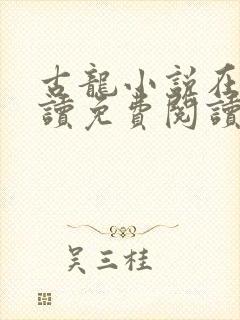 古龍小說在
讀免費閱讀
吳三桂